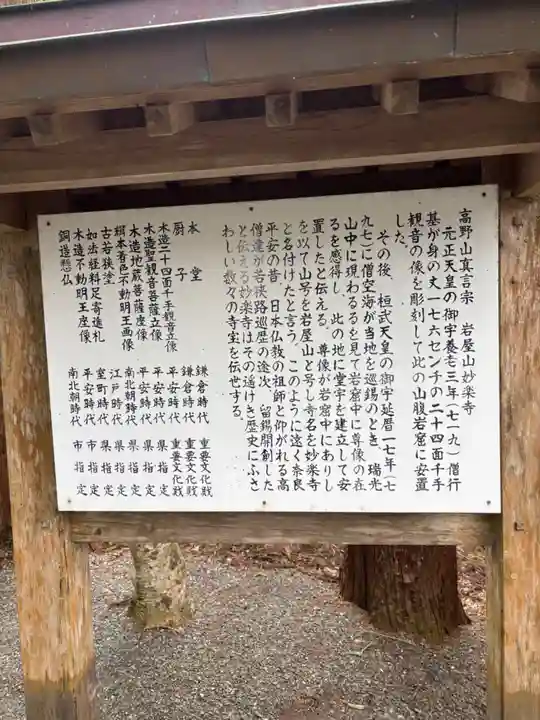 高野山真言宗　岩屋山妙楽寺
元正天皇の御宇養老三年（七一九）僧行
基が身の丈一七六センチの二十四面千手
観音の像を彫刻して此の山腹岩窟に安置
した。
その後、桓武天皇の御宇延暦一六年（七
九七）に僧空海が当地を巡錫のとき、瑞光
山中に現わるるを見て岩窟中に尊像の在
るを感得し、此の地に堂宇を建立して安
置したと伝える。尊像が岩窟中にありし
を以て山号を岩屋山と号し寺名を妙楽寺
と名付けたと言う。このように遠く奈良
平安の昔、日本仏教の祖師と仰がれる高
僧達が若狭路巡歴の途次、留錫開創した
と伝える妙楽寺はその遥けき歴史にふさ
わしい数々の寺宝を伝世する。
本堂　鎌倉時代　重要文化財
厨子　鎌倉時代　重要文化財
木造二十四面千手観音立像　平安時代　重要文化財
木造聖観音菩薩立像　平安時代　県指定
木造地蔵菩薩座像　南北朝時代　県指定
絹本着色不動明王画像　江戸時代　県指定
古若狭塗　室町時代　県指定
如法経料足寄進札　室町時代　県指定
木造不動明王座像　平安時代　市指定
銅造懸仏　南北朝時代　市指定